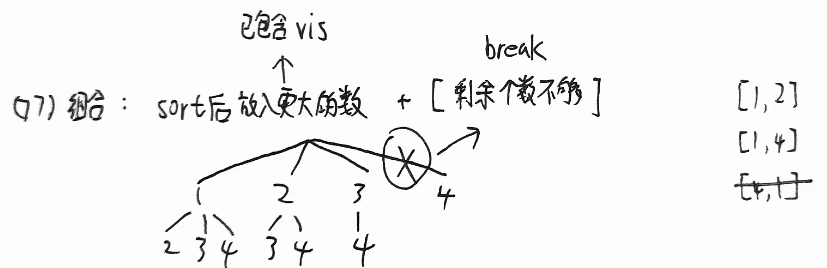 已包含vis
break
(77) 组合: sort后放入更大的数 + [剩余个数不够]
[1,2]
[1,4]
[4,1]
1 2 3 X 4
2 3 4 3 4 4